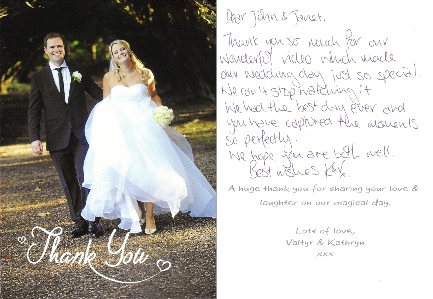 Thank You
Dear John & Janet,
Thank you so much for our
wonderful video which made
our wedding day just so special.
We can't stop watching it
We had the best day ever and
you have captured the moments
so perfectly.
We hope you are both well.
Best wishes
A huge thank you for sharing your love &
laughter on our magical day.
Lots of love,
Valtyr & Kathryn
xxx